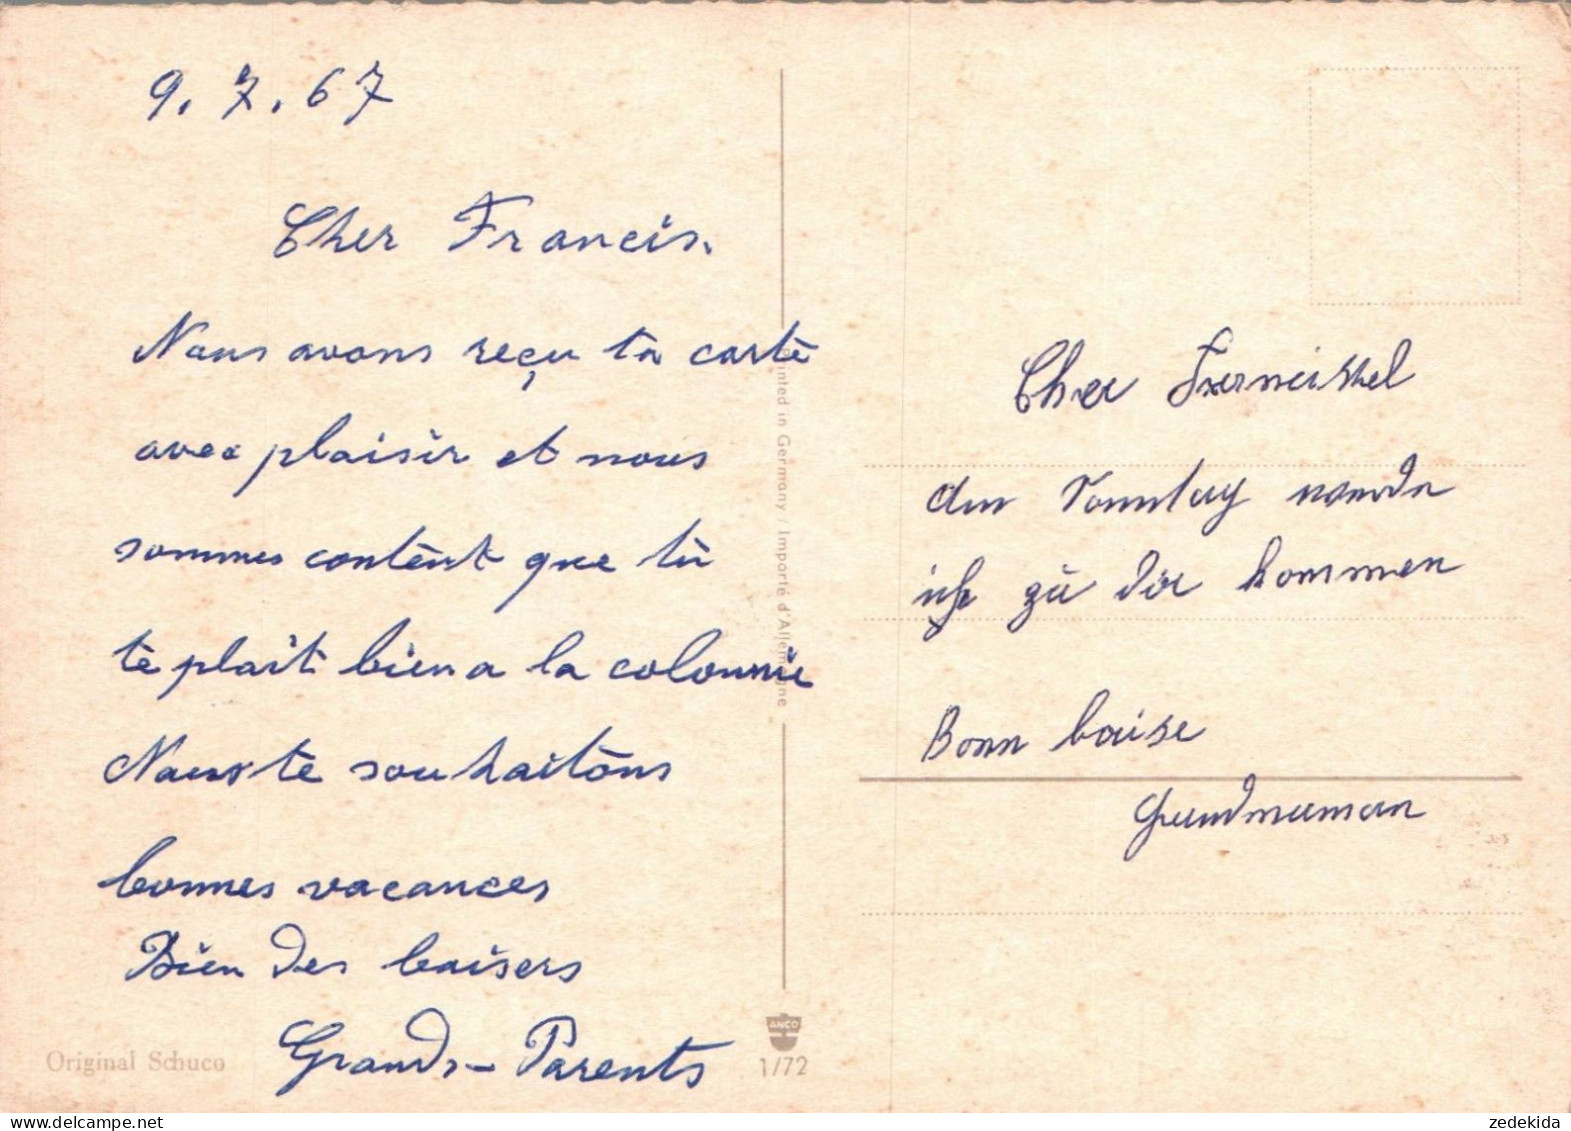 9. 7. 67
Cher Francis.
Nous avons reçu ta carte
avec plaisir et nous
sommes content que tu
te plait bien a la colonnie
Nous te souhaitons
bonnes vacances
Bien des baisers
Grands-Parents
Original Schuco
Printed in Germany / Importé d'Allemagne
ANCO
1/72
Cher
am Sonntag werde
ich zu dir kommen
Bonn baise
Grandmaman
zedekida